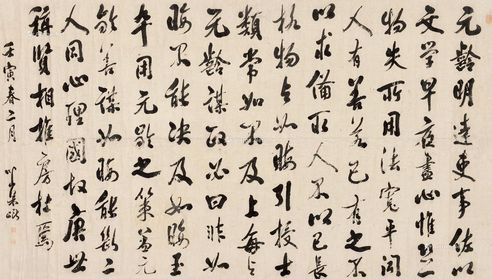 元齡明達吏事佐以
文學早夜盡心惟恐一
物失所用法寬平聞
人有善若己有之不
以求備取人不以己長
格物與如晦引拔士
類常如不及上每與
元齡謀政必曰非如
晦不能決及如晦至
卒用元齡之策蓋元
齡善謀如晦能斷二
人同心理國故唐世
稱賢相推房杜焉
壬寅春二月